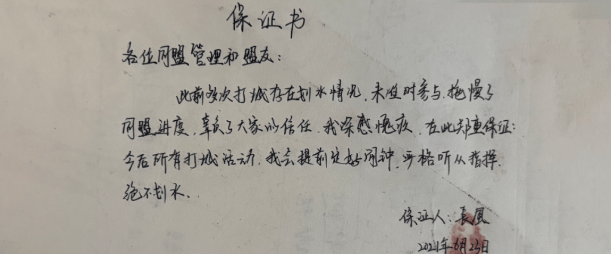 保证书
各位同盟管理和盟友：
此前多次打城存在划水情况，未准时参与，拖慢了
同盟进度，辜负了大家的信任，我深感愧疚，在此郑重保证：
今后所有打城活动，我会提前定好闹钟，严格听从指挥，
绝不划水．
保证人：長風
2021年6月23日